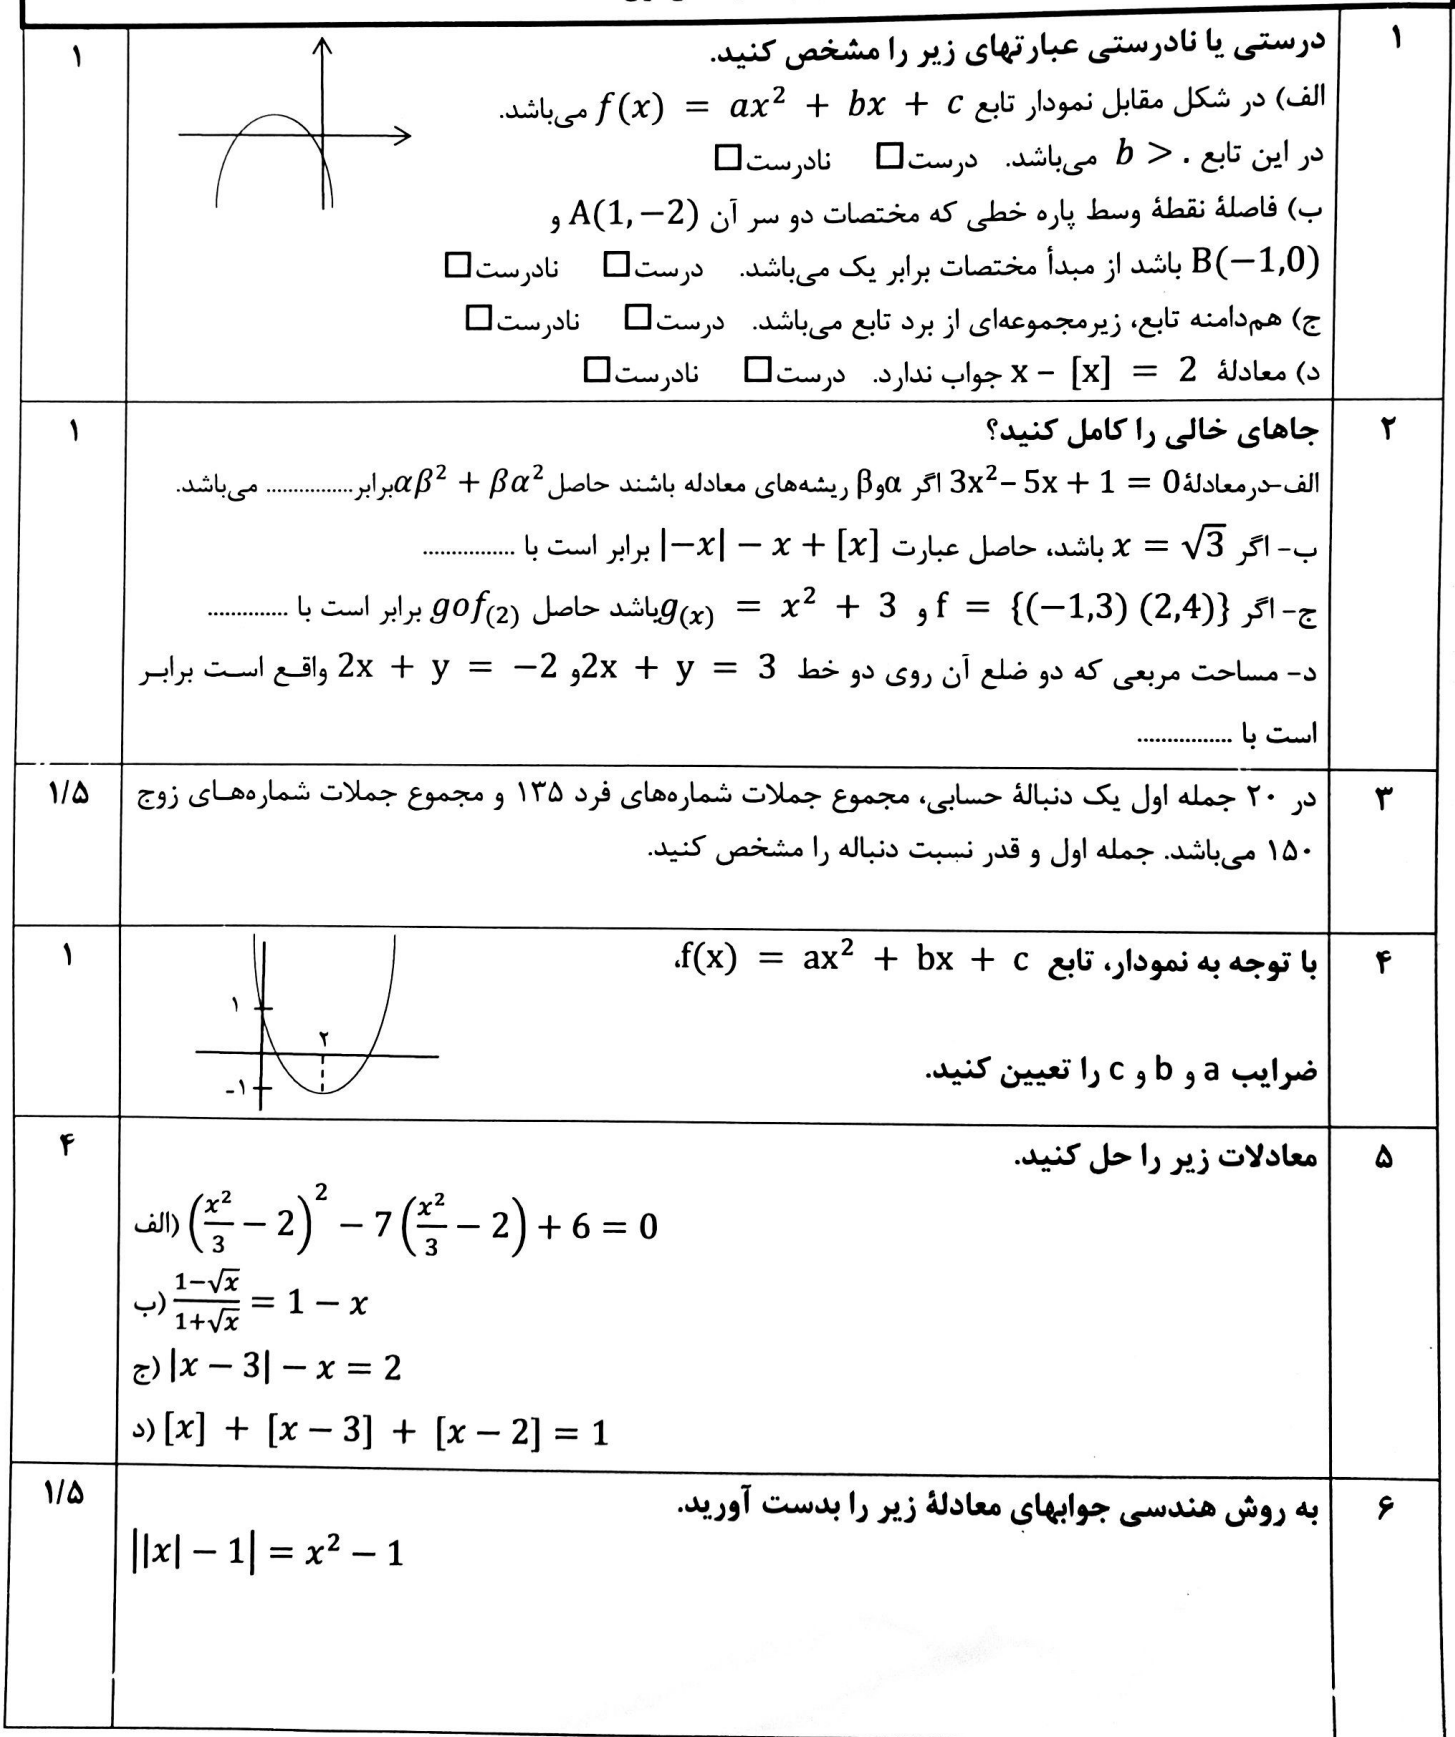 ۱
درستی یا نادرستی عبارتهای زیر را مشخص کنید.
۱
الف) در شکل مقابل نمودار تابع f(x) = ax² + bx + c می‌باشد.
در این تابع b > ۰ می‌باشد. درست□ نادرست□
ب) فاصلهٔ نقطهٔ وسط پاره خطی که مختصات دو سر آن A(1,−2) و
B(−1,0) باشد از مبدأ مختصات برابر یک می‌باشد. درست□ نادرست□
ج) هم‌دامنه تابع، زیرمجموعه‌ای از برد تابع می‌باشد. درست□ نادرست□
د) معادلهٔ x − [x] = 2 جواب ندارد. درست□ نادرست□
۲
جاهای خالی را کامل کنید؟
۱
الف-درمعادلهٔ 3x² − 5x + 1 = 0 اگر α و β ریشه‌های معادله باشند حاصل αβ² + βα² برابر............... می‌باشد.
ب- اگر x = √3 باشد، حاصل عبارت |−x| − x + [x] برابر است با ...............
ج- اگر f = {(−1,3) (2,4)} و g(x) = x² + 3 باشد حاصل gof(2) برابر است با .............
د- مساحت مربعی که دو ضلع آن روی دو خط 2x + y = 3 و 2x + y = −2 واقع است برابر
است با ................
۳
در ۲۰ جمله اول یک دنبالهٔ حسابی، مجموع جملات شماره‌های فرد ۱۳۵ و مجموع جملات شماره‌های زوج
۱/۵
۱۵۰ می‌باشد. جمله اول و قدر نسبت دنباله را مشخص کنید.
۴
با توجه به نمودار، تابع f(x) = ax² + bx + c،
۱
ضرایب a و b و c را تعیین کنید.
۱
۲
-۱
۵
معادلات زیر را حل کنید.
۴
الف) (x²/3 − 2)² − 7(x²/3 − 2) + 6 = 0
ب) (1−√x)/(1+√x) = 1 − x
ج) |x − 3| − x = 2
د) [x] + [x − 3] + [x − 2] = 1
۶
به روش هندسی جوابهای معادلهٔ زیر را بدست آورید.
۱/۵
||x| − 1| = x² − 1